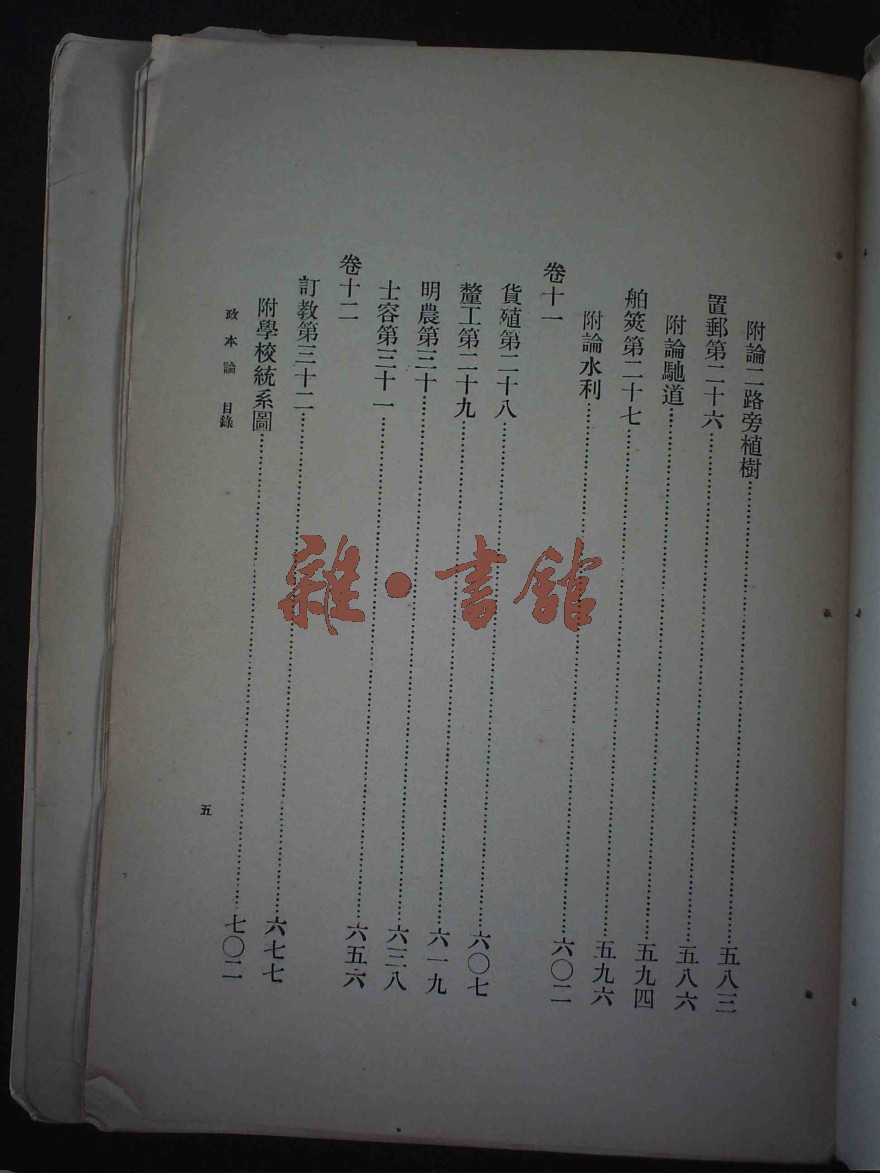 附論二路旁植樹⋯⋯五八三
置郵第二十六⋯⋯五八六
附論馳道⋯⋯五九四
舶筴第二十七⋯⋯五九六
附論水利⋯⋯六〇二
卷十一
貨殖第二十八⋯⋯六〇七
釐工第二十九⋯⋯六一九
明農第三十⋯⋯六三八
士容第三十一⋯⋯六五六
卷十二
訂教第三十二⋯⋯六七七
附學校統系圖⋯⋯七〇二
政本論 目錄
五
雜·書館